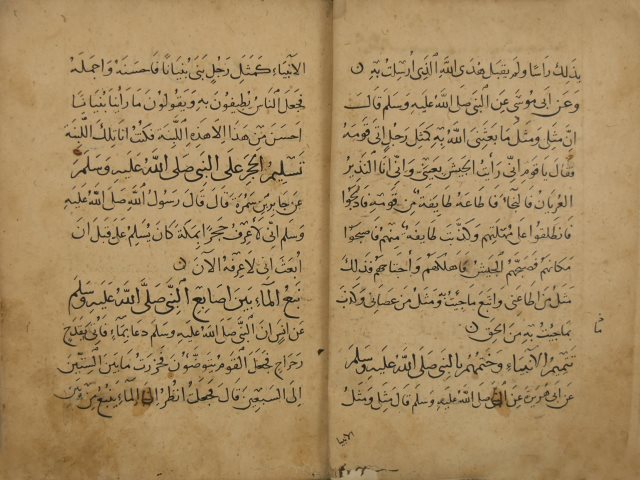 بذلك راسا ولم يقبل هدى الله الذي ارسلت به
وعن ابي موسى عن النبي صلى الله عليه وسلم قال
ان مثلي ومثل ما بعثني الله به كمثل رجل اتى قومه
فقال يا قوم اني رايت الجيش بعيني واني انا النذير
العريان فالنجا فاطاعه طايفة من قومه فادلجوا
فانطلقوا على مهلتهم وكذبت طايفة منهم فاصبحوا
مكانهم فصبحهم الجيش فاهلكهم واجتاحهم فذلك
مثل من اطاعني واتبع ما جيت به ومثل من عصاني وكذب
بما جيت به من الحق
تتميم الانبياء وختمهم بالنبي صلى الله عليه وسلم
عن ابي هريرة عن النبي صلى الله عليه وسلم قال مثلي ومثل
الانبيا
الانبياء كمثل رجل بنى بنيانا فاحسنه واجمله
فجعل الناس يطيفون به ويقولون ما راينا بنيانا
احسن من هذا الا هذه اللبنة فكنت انا تلك اللبنة
تسليم الحجر على النبي صلى الله عليه وسلم
عن جابر بن سمرة قال قال رسول الله صلى الله عليه
وسلم اني لاعرف حجرا بمكة كان يسلم علي قبل ان
ابعث اني لاعرفه الآن
نبع الماء بين اصابع النبي صلى الله عليه وسلم
عن انس ان النبي صلى الله عليه وسلم دعا بماء فاتي بقدح
رحراح فجعل القوم يتوضؤن فحزرت ما بين الستين
الى السبعين قال فجعلت انظر الى الماء ينبع من بين